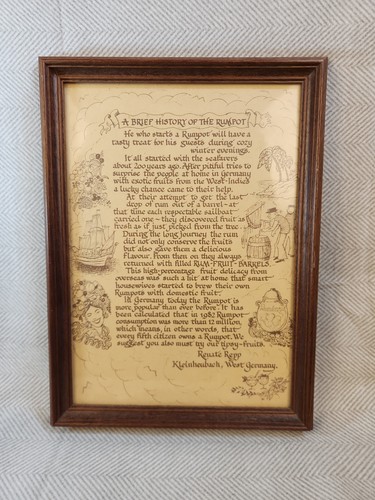 A BRIEF HISTORY OF THE RUMPOT
He who starts a Rumpot will have a
tasty treat for his guests during cozy
winter evenings.
It all started with the seafarers
about 200 years ago. After pitiful tries to
surprise the people at home in Germany
with exotic fruits from the West-Indies
a lucky chance came to their help.
At their attempt to get the last
drop of rum out of a barrel - at
that time each respectable sailboat
carried one - they discovered fruit as
fresh as if just picked from the tree.
During the long journey the rum
did not only conserve the fruits
but also gave them a delicious
flavour. From then on they always
returned with filled RUM-FRUIT-BARRELS.
This high-percentage fruit delicacy from
overseas was such a hit at home that smart
housewives started to brew their own
Rumpots with domestic fruit.
In Germany today the Rumpot is
more popular than ever before. It has
been calculated that in 1982 Rumpot
consumption was more than 12 million,
which means, in other words, that
every fifth citizen owns a Rumpot. We
suggest you also must try our tipsy-fruits.
Renate Repp
Kleinheubach, West Germany.